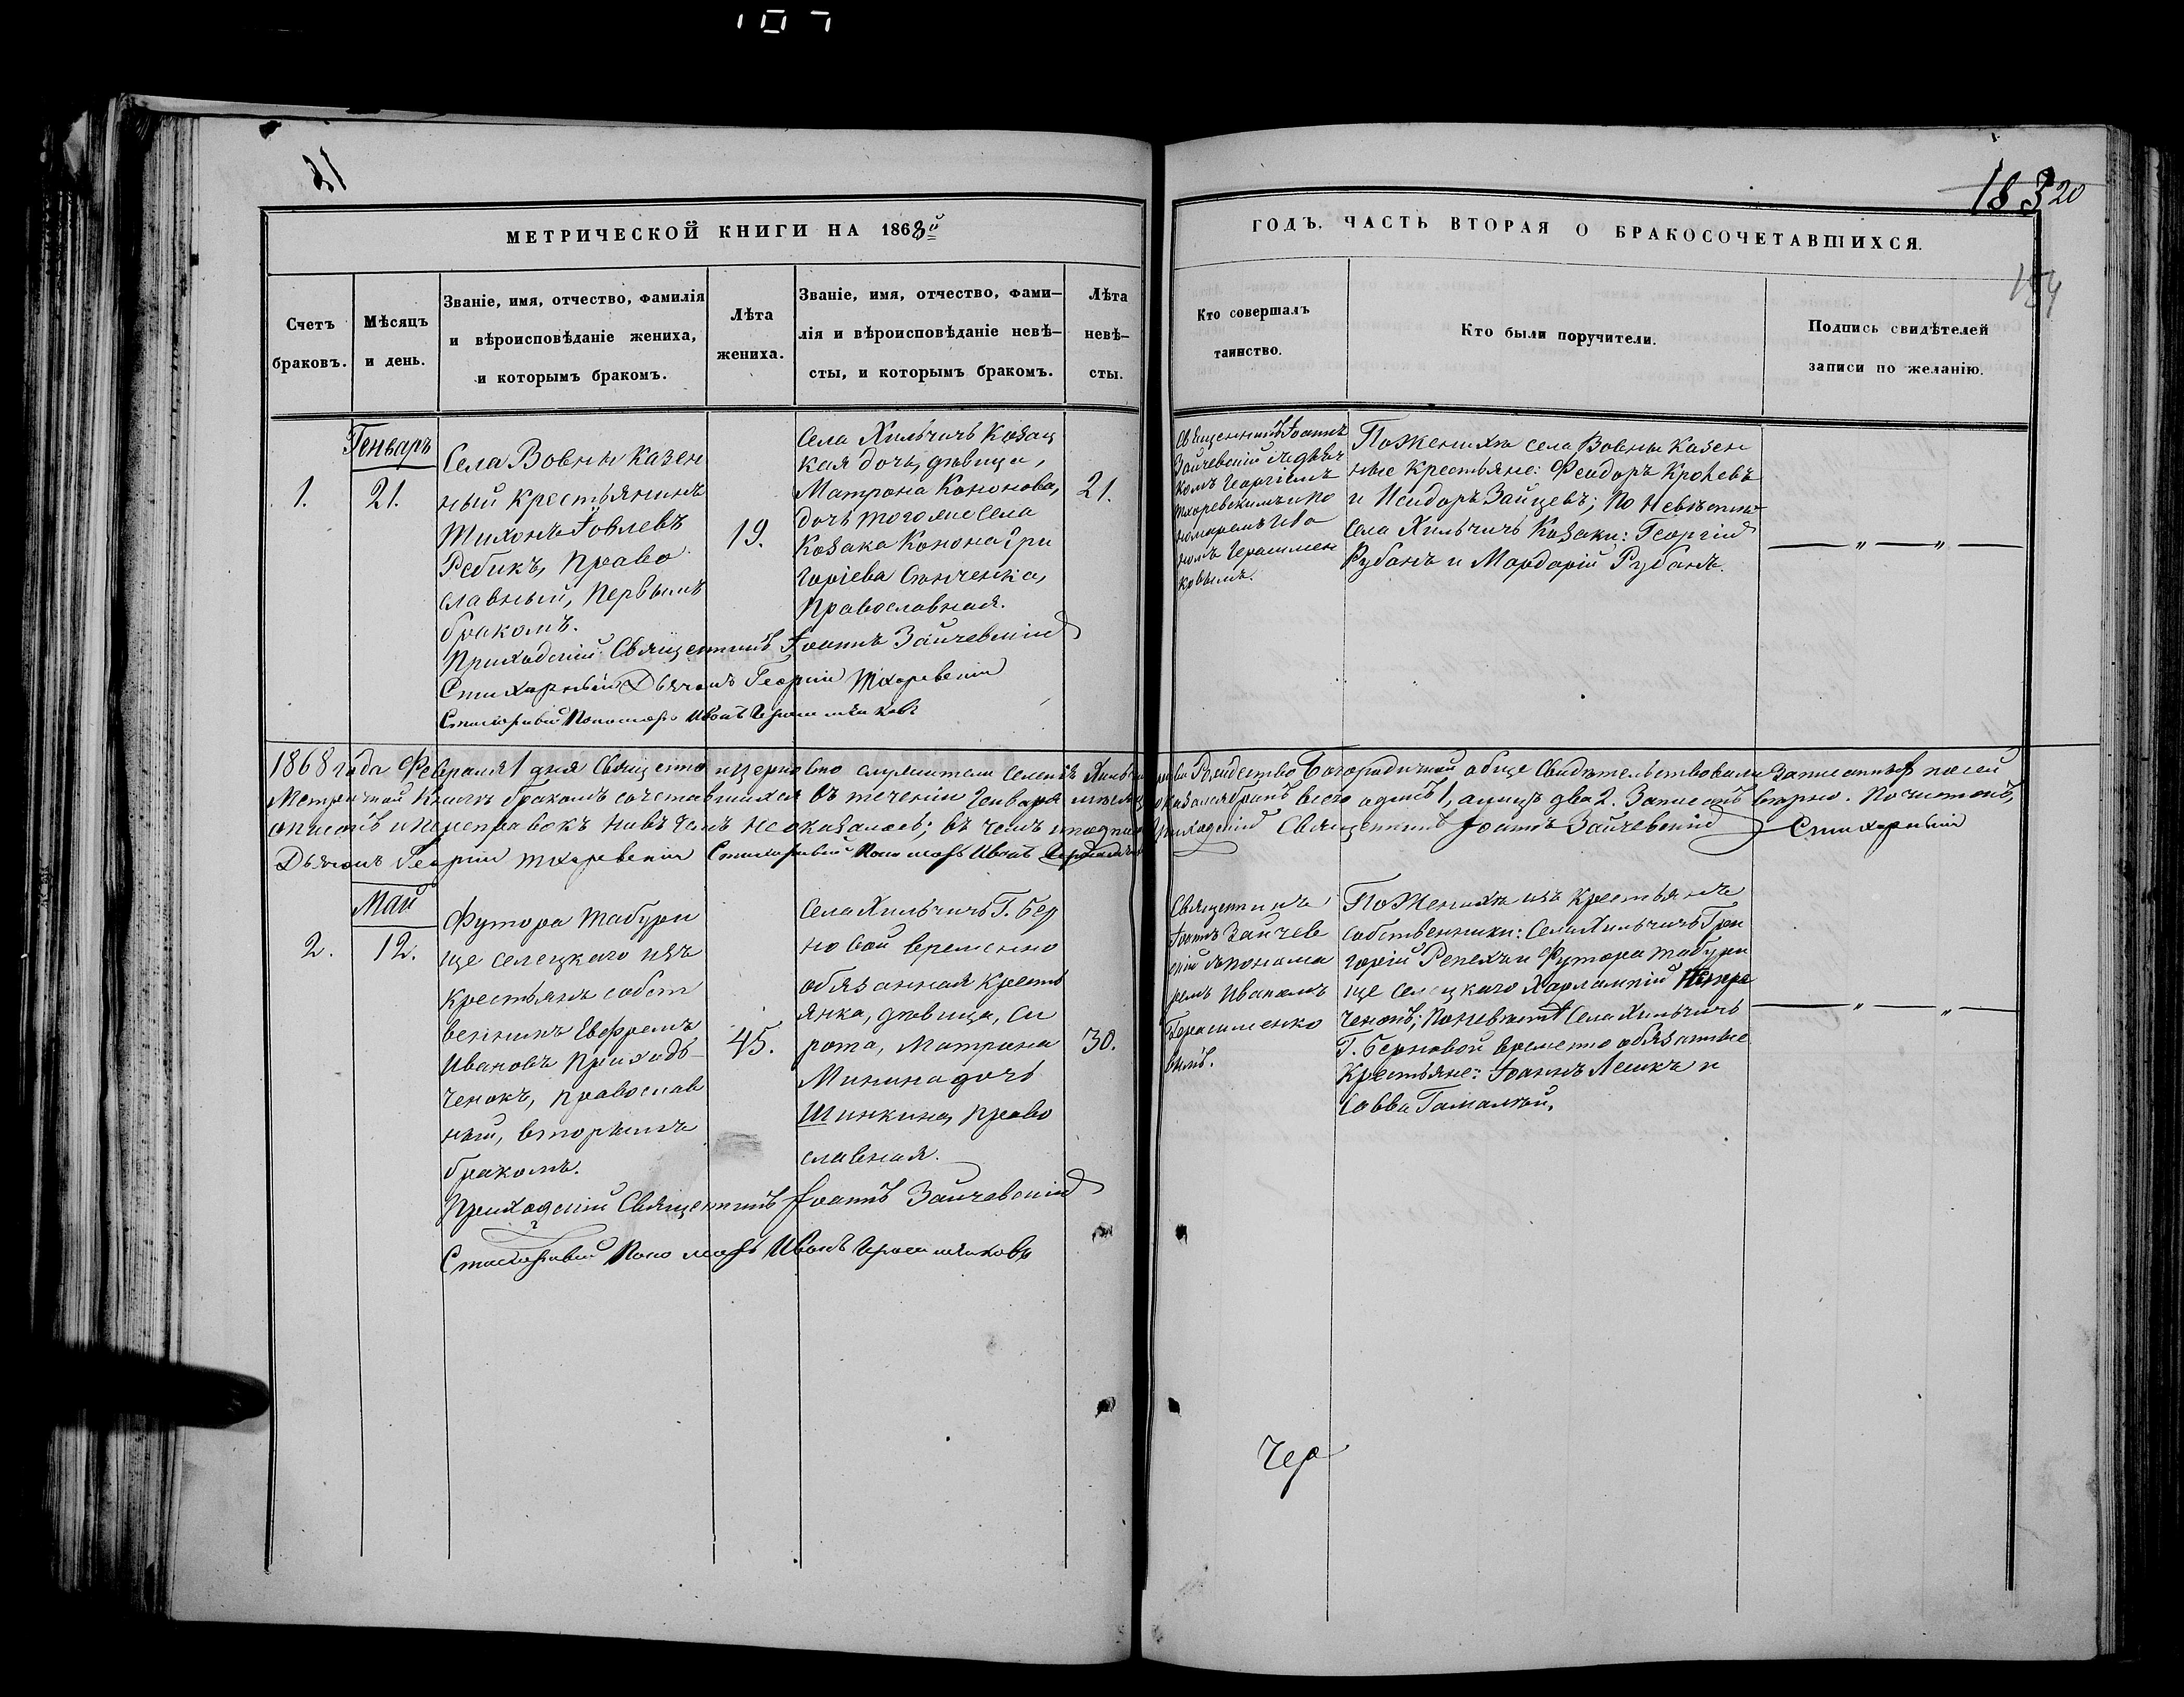 107
21
18 3 20
154
МЕТРИЧЕСКОЙ КНИГИ НА 1868й
ГОДЪ. ЧАСТЬ ВТОРАЯ О БРАКОСОЧЕТАВШИХСЯ.
Счетъ
браковъ.
Мѣсяцъ
и день.
Званіе, имя, отчество, фамилія
и вѣроисповѣданіе жениха,
и которымъ бракомъ.
Лѣта
жениха.
Званіе, имя, отчество, фами–
лія и вѣроисповѣданіе невѣ–
сты, и которымъ бракомъ.
Лѣта
невѣ–
сты.
Кто совершалъ
таинство.
Кто были поручители.
Подпись свидѣтелей
записи по желанію.
Генварь
1.
21.
Села Вовны Казен
ный крестьянинъ
Тихонъ Іовлевъ
Ребикъ, Право
славный, первымъ
бракомъ.
19.
Села Хильчичь Козац
кая дочь, дѣвица,
Матрона Кононова,
дочь того же села
Козака Конона Гри
горіева Сѣнченка,
Православная.
21.
Священникъ Іоаннъ
Зайчевскій съ дьяч
комъ Георгіемъ
Тхоревскимъ и по
номаремъ Ива
номъ Герасимен
ковымъ.
По Женихѣ села Вовны Казен
ные Крестьяне: Феодоръ Кролевъ
и Исидоръ Зайцевъ; по Невѣстѣ
Села Хильчичь Козаки: Георгій
Рубанъ и Мардарій Рубанъ.
— „ — „ —
Приходскій Священникъ Іоаннъ Зайчевскій
Стихарный Дьячокъ Георгій Тхоревскій
Стихарный Пономарь Иванъ Герасименковъ
1868 года Февраля 1 дня Священно и церковно служители села Хильчичь Рождество Богородичной обще свидѣтельствовали записанныхъ по сей
Метричной Книгѣ бракомъ сочетавшихся въ теченіи Генваря мѣсяца оказался бракъ всего одинъ 1, а лицъ два 2. Записанъ вѣрно. Почистокъ,
описокъ и переправокъ ни въ чемъ не оказалось; въ чемъ и подпи Приходскій Священникъ Іоаннъ Зайчевскій Стихарный
Дьячокъ Георгій Тхоревскій Стихарный Пономарь Иванъ
Май
2.
12.
Футора Табури
ще селецкаго изъ
крестьянъ собст
венникъ Евфремъ
Ивановъ Приходь–
ченокъ, православ
ный, вторымъ
бракомъ.
45.
Села Хильчичь Г. Бер
новой временно
обязанная крестьянка,
дѣвица, си
рота, Матрона
Минина дочь
Шинкина, право
славная.
30.
Священникъ
Іоаннъ Зайчев
скій съ понома
ремъ Иваномъ
Герасименко
вымъ.
По Женихѣ изъ Крестьянъ
собственники: Села Хильчичь Гри
горій Репехъ и Футора Табури
ще Селецкаго Харлампій
ченокъ; по невѣстѣ Села Хильчичь
Г. Берновой временно обязанные
Крестьяне: Іоаннъ Лешкъ и
Савва Гамалѣй.
— „ — „ —
Приходскій Священникъ Іоаннъ Зайчевскій
Стихарный Пономарь Иванъ Герасименковъ
Чер